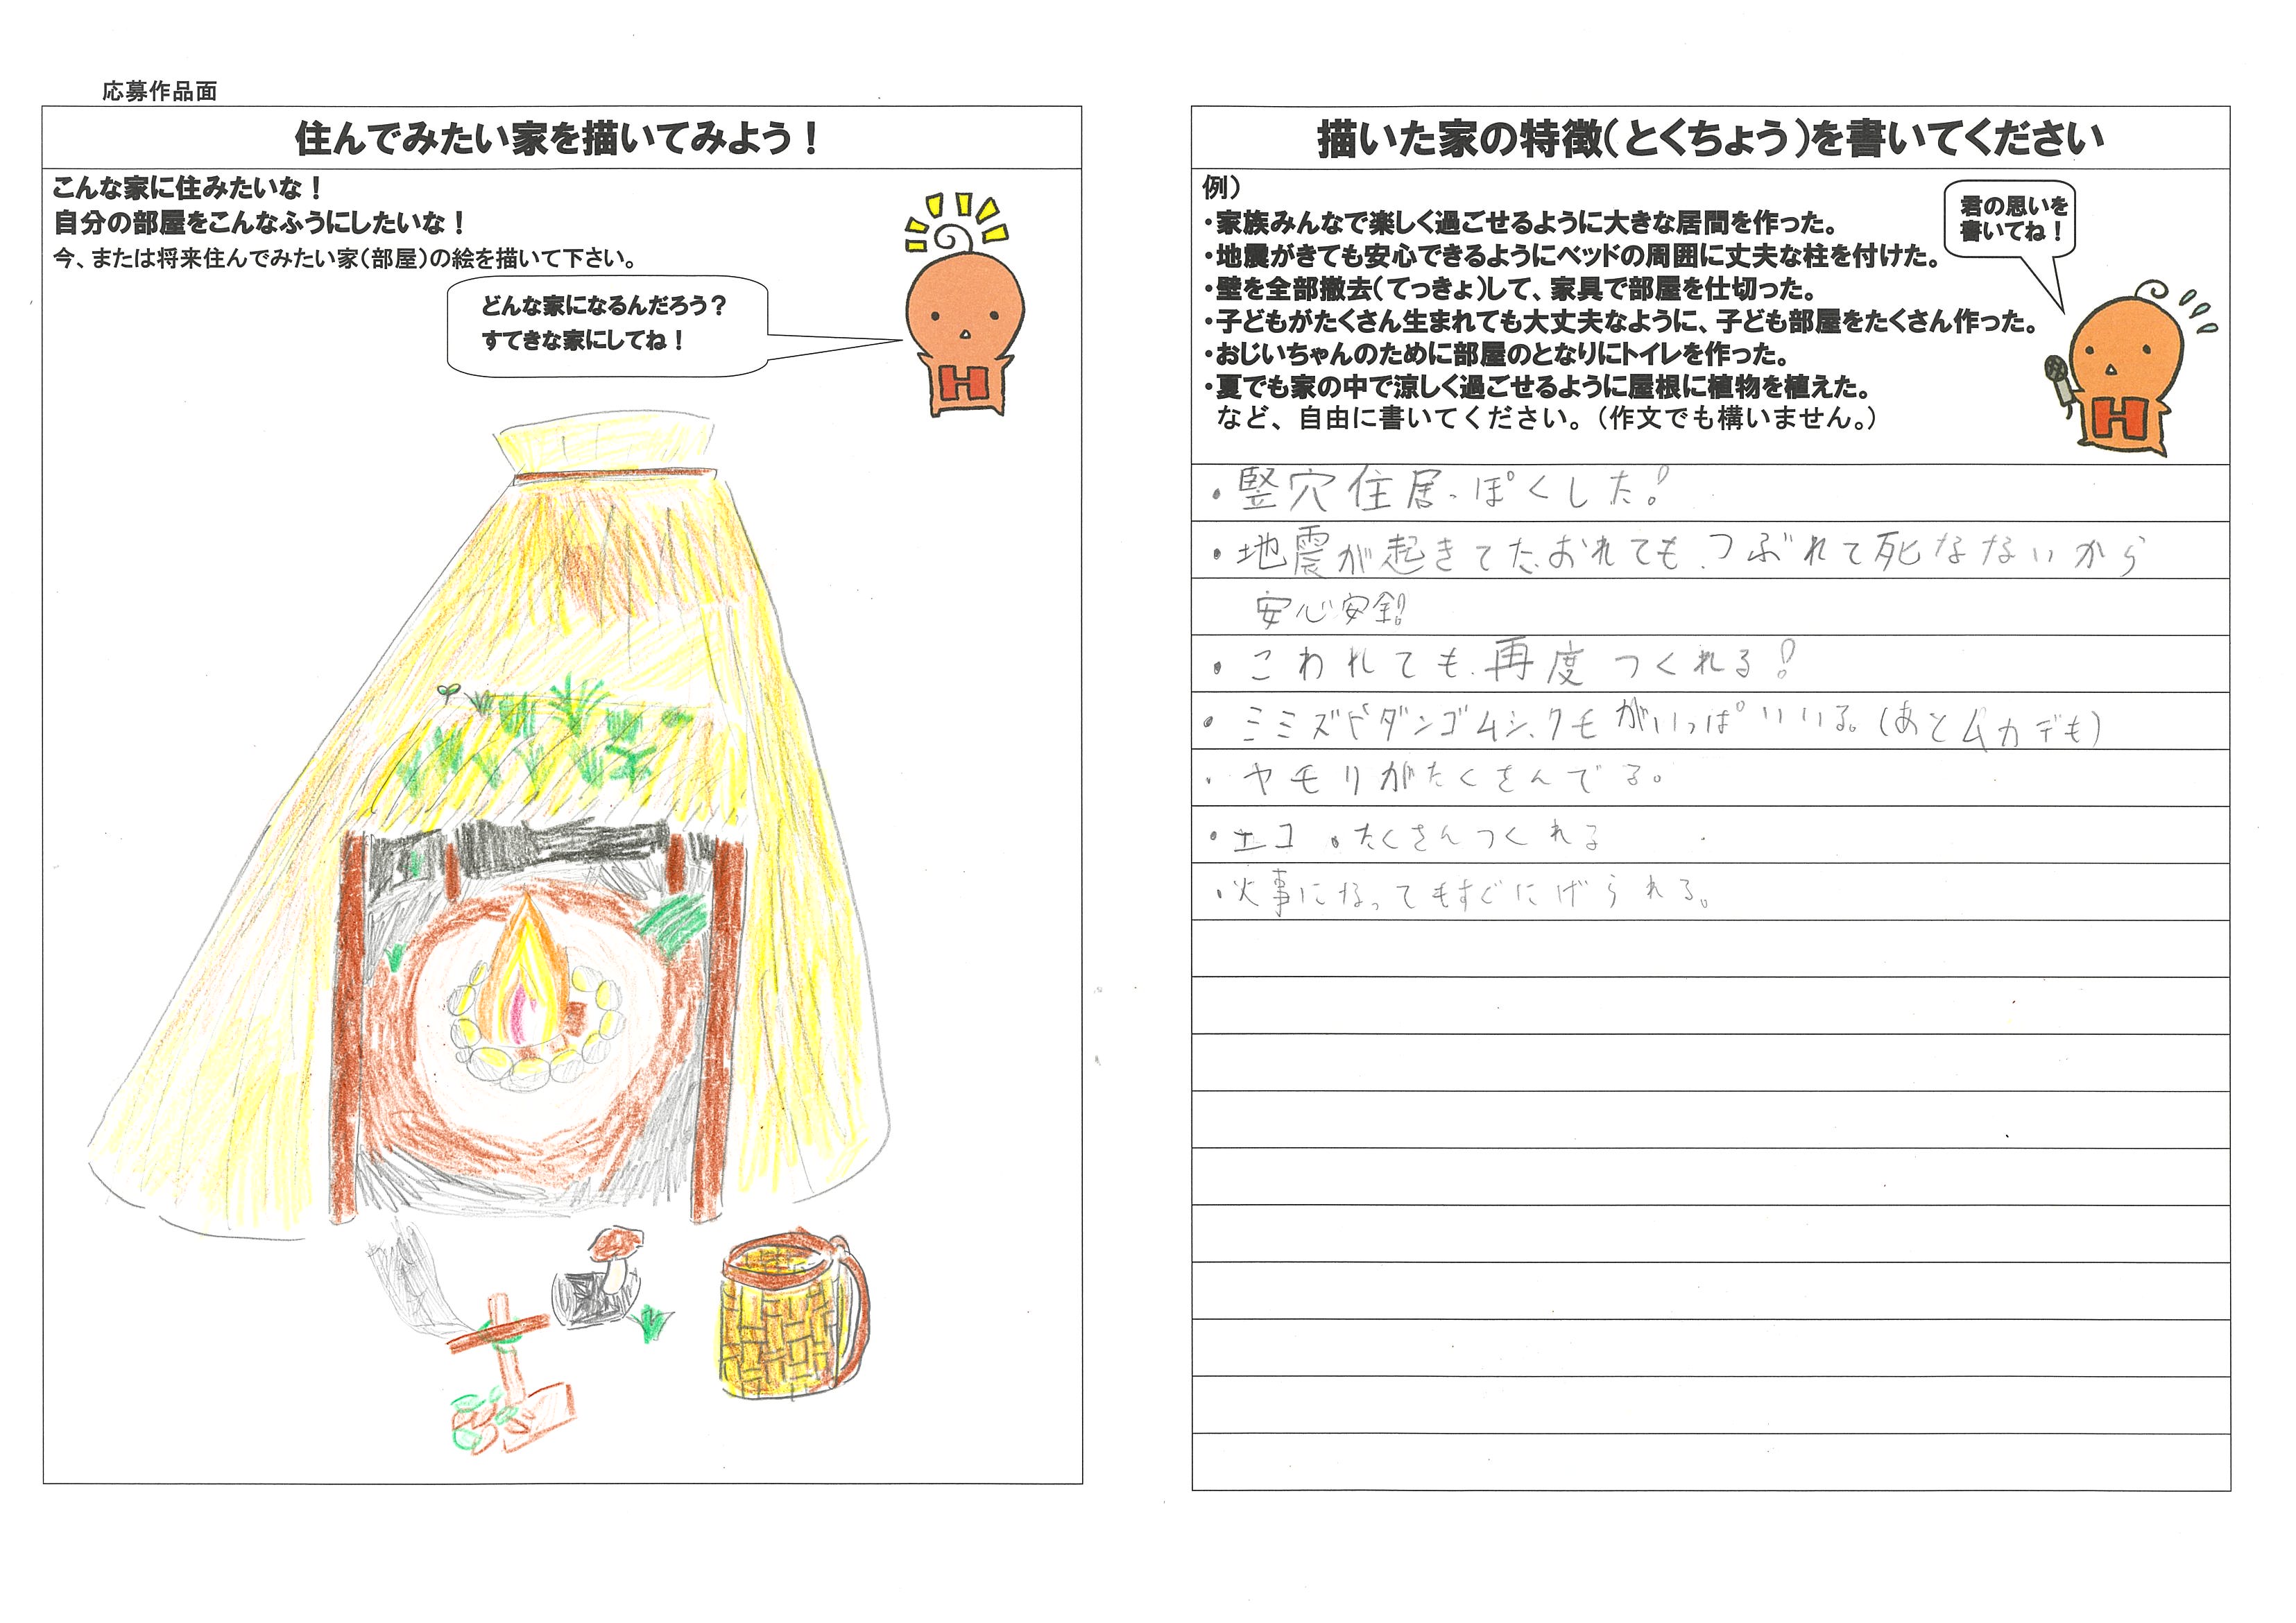 応募作品面
住んでみたい家を描いてみよう!
こんな家に住みたいな!
自分の部屋をこんなふうにしたいな!
今、または将来住んでみたい家(部屋)の絵を描いて下さい。
どんな家になるんだろう?
すてきな家にしてね!
H
描いた家の特徴(とくちょう)を書いてください
例)
・家族みんなで楽しく過ごせるように大きな居間を作った。
・地震がきても安心できるようにベッドの周囲に丈夫な柱を付けた。
・壁を全部撤去(てっきょ)して、家具で部屋を仕切った。
・子どもがたくさん生まれても大丈夫なように、子ども部屋をたくさん作った。
・おじいちゃんのために部屋のとなりにトイレを作った。
・夏でも家の中で涼しく過ごせるように屋根に植物を植えた。
など、自由に書いてください。(作文でも構いません。)
君の思いを
書いてね!
H
・竪穴住居っぽくした!
・地震が起きてたおれても、つぶれて死なないから
安心安全!
・こわれても再度つくれる!
・ミミズやダンゴムシ、クモがいっぱいいる。(あとムカデも)
・ヤモリがたくさんでる。
・エコ ・たくさんつくれる
・火事になってもすぐにげられる。